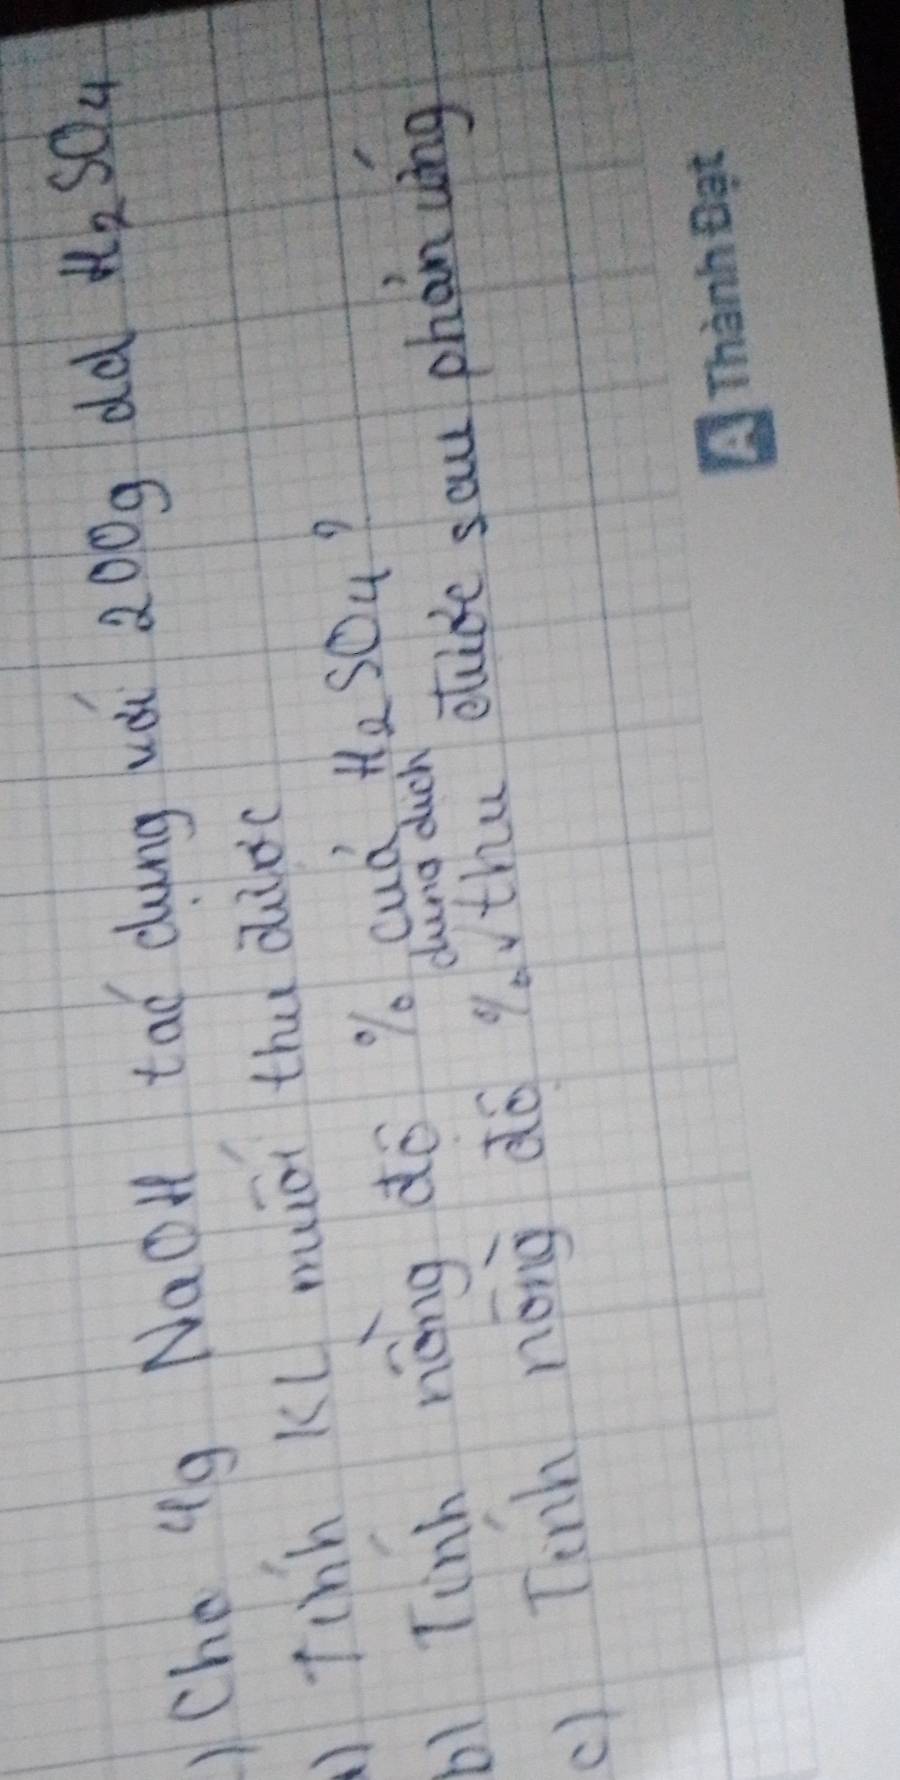 ) Cho 4g NaOH tác dụng với 200g dd H2SO4
a) Tính KL muối thu được
b) Tính nồng độ % của H2SO4?
dung dịch
c) Tính nồng độ %√thu được sau phản ứng
A Thành Đạt